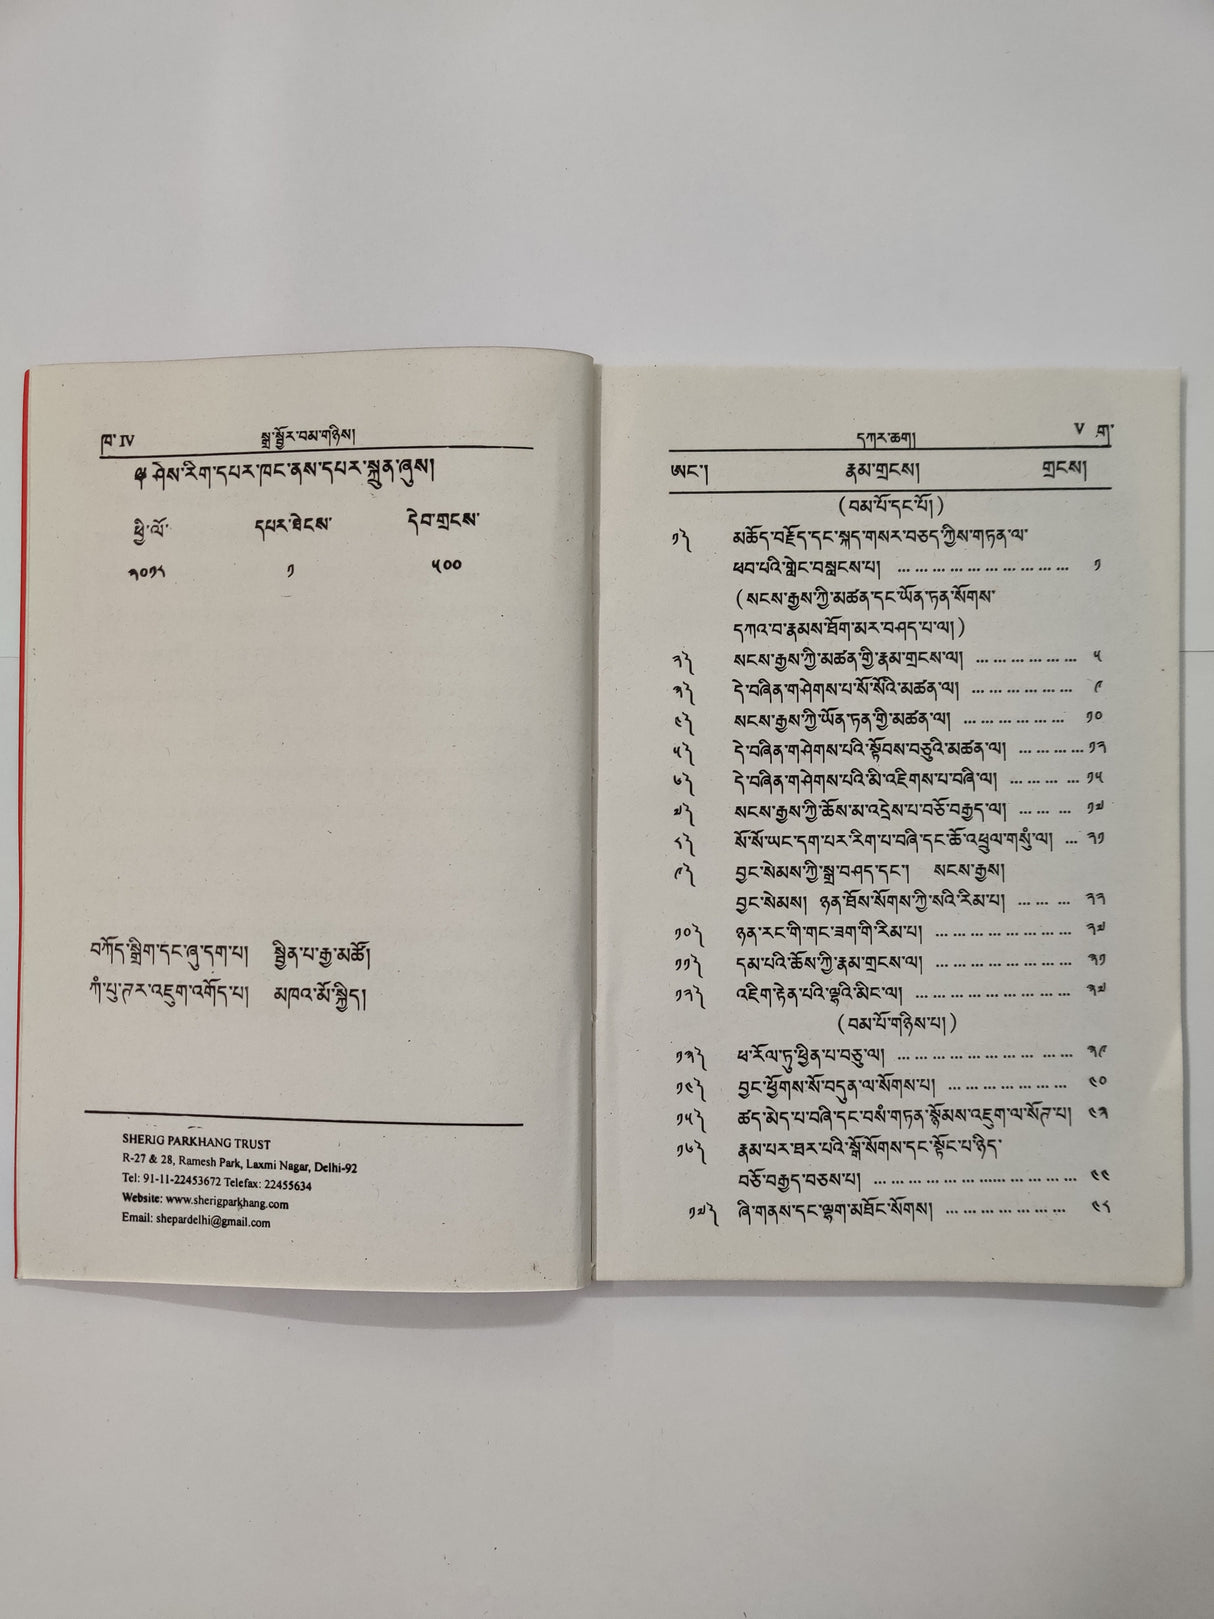 ཁ་ IV
སྒྲ་སྦྱོར་བམ་གཉིས།
༄ ཤེས་རིག་དཔར་ཁང་ནས་དཔར་སྐྲུན་ཞུས།
ཕྱི་ལོ་ དཔར་ཐེངས་ དེབ་གྲངས་
༢༠༡༨ ༡ ༥༠༠
བཀོད་སྒྲིག་དང་ཞུ་དག་པ། སྦྱིན་པ་རྒྱ་མཚོ།
ཀཾ་པུ་ཊར་འཇུག་འགོད་པ། མཁའ་མོ་སྐྱིད།
SHERIG PARKHANG TRUST
R-27 & 28, Ramesh Park, Laxmi Nagar, Delhi-92
Tel: 91-11-22453672 Telefax: 22455634
Website: www.sherigparkhang.com
Email: shepardelhi@gmail.com
དཀར་ཆག།
V ག་
ཨང་། རྣམ་གྲངས། གྲངས།
(བམ་པོ་དང་པོ།)
༡༽ མཆོད་བརྗོད་དང་སྐད་གསར་བཅད་ཀྱིས་གཏན་ལ་
ཕབ་པའི་གླེང་བསླངས་པ། ... ... ... ... ... ... ... ... ... ... ༡
(སངས་རྒྱས་ཀྱི་མཚན་དང་ཡོན་ཏན་སོགས་
དཀའ་བ་རྣམས་ཐོག་མར་བཤད་པ་ལ།)
༢༽ སངས་རྒྱས་ཀྱི་མཚན་གྱི་རྣམ་གྲངས་ལ། ... ... ... ... ... ... ༥
༣༽ དེ་བཞིན་གཤེགས་པ་སོ་སོའི་མཚན་ལ། ... ... ... ... ... ... ༩
༤༽ སངས་རྒྱས་ཀྱི་ཡོན་ཏན་གྱི་མཚན་ལ། ... ... ... ... ... ... ༡༠
༥༽ དེ་བཞིན་གཤེགས་པའི་སྟོབས་བཅུའི་མཚན་ལ། ... ... ... ... ༡༢
༦༽ དེ་བཞིན་གཤེགས་པའི་མི་འཇིགས་པ་བཞི་ལ། ... ... ... ... ༡༥
༧༽ སངས་རྒྱས་ཀྱི་ཆོས་མ་འདྲེས་པ་བཅོ་བརྒྱད་ལ། ... ... ... ༡༧
༨༽ སོ་སོ་ཡང་དག་པར་རིག་པ་བཞི་དང་ཆོ་འཕྲུལ་གསུཾ་ལ། ... ༢༡
༩༽ བྱང་སེམས་ཀྱི་སྒྲ་བཤད་དང་། སངས་རྒྱས།
བྱང་སེམས། ཉན་ཐོས་སོགས་ཀྱི་སའི་རིམ་པ། ... ... ... ༢༢
༡༠༽ ཉན་རང་གི་གང་ཟག་གི་རིམ་པ། ... ... ... ... ... ... ... ... ༢༧
༡༡༽ དམ་པའི་ཆོས་ཀྱི་རྣམ་གྲངས་ལ། ... ... ... ... ... ... ... ... ༣༡
༡༢༽ འཇིག་རྟེན་པའི་ལྷའི་མིང་ལ། ... ... ... ... ... ... ... ... ... ༣༧
(བམ་པོ་གཉིས་པ།)
༡༣༽ ཕ་རོལ་ཏུ་ཕྱིན་པ་བཅུ་ལ། ... ... ... ... ... ... ... ... ... ... ༣༩
༡༤༽ བྱང་ཕྱོགས་སོ་བདུན་ལ་སོགས་པ། ... ... ... ... ... ... ... ༤༠
༡༥༽ ཚད་མེད་པ་བཞི་དང་བསཾ་གཏན་སྙོམས་འཇུག་ལ་སོཊ་པ། ༤༣
༡༦༽ རྣམ་པར་ཐར་པའི་སྒོ་སོགས་དང་སྟོང་པ་ཉིད་
བཅོ་བརྒྱད་བཅས་པ། ... ... ... ... ... ... ... ... ... ... ... ... ༤༤
༡༧༽ ཞི་གནས་དང་ལྷག་མཐོང་སོགས། ... ... ... ... ... ... ... ༤༨